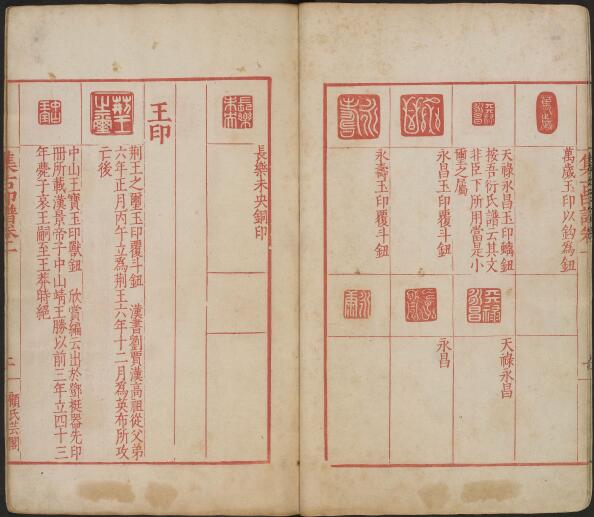 集古印譜卷一
萬歲玉印以鈎為鈕
天祿永昌玉印螭鈕
按吾衍氏譜云其文
非臣下所用當是小
璽之屬
永昌玉印覆斗鈕
永壽玉印覆斗鈕
天祿永昌
永昌
長樂未央
長樂未央銅印
王印
荊王之璽
荊王之璽玉印覆斗鈕 漢書劉賈漢高祖從父弟
六年正月丙午立為荊王六年十二月為英布所攻
亡後
中山王寶玉印獸鈕 欣賞編云出於鄧梃器先印
冊所載漢景帝子中山靖王勝以前三年立四十三
年薨子哀王嗣至王莽時絕
集古印譜卷一
顧氏芸閣